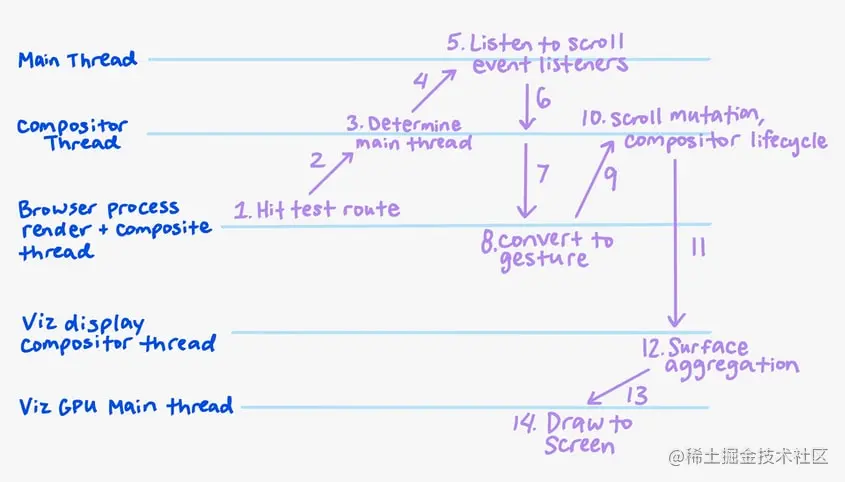 5. Listen to scroll
event listeners
Main Thread
4
6
10. Scroll mutation,
compositor lifecycle
Compositor
Thread
3. Determine
main thread
2
7
9
Browser process
render + composite
thread
1. Hit test route
8. Convert to
gesture
11
Viz display
compositor thread
12. Surface
aggregation
13
Viz GPU Main thread
14. Draw to
Screen
@稀土掘金技术社区